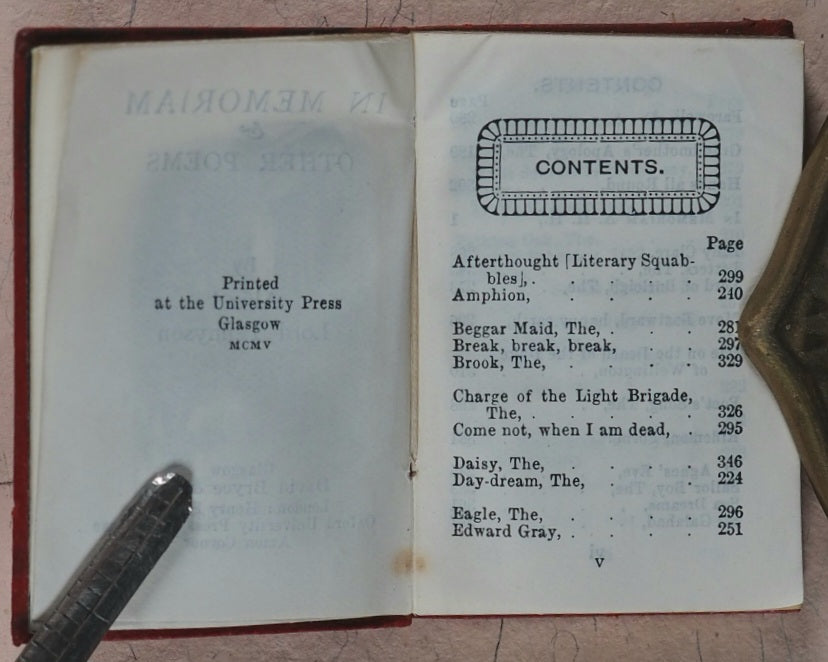 Printed
at the University Press
Glasgow
MCMV
CONTENTS.
Page
Afterthought [Literary Squab-
bles], . 299
Amphion, . . . . 240
Beggar Maid, The, . . . 281
Break, break, break, . . 297
Brook, The, . . . . 329
Charge of the Light Brigade,
The, . . . . . 326
Come not, when I am dead, . 295
Daisy, The, . . . . 346
Day-dream, The, . . . 224
Eagle, The, . . . . 296
Edward Gray, . . . . 251
v